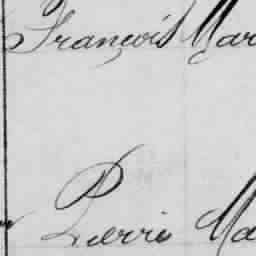 François Mar
Pierre Ma